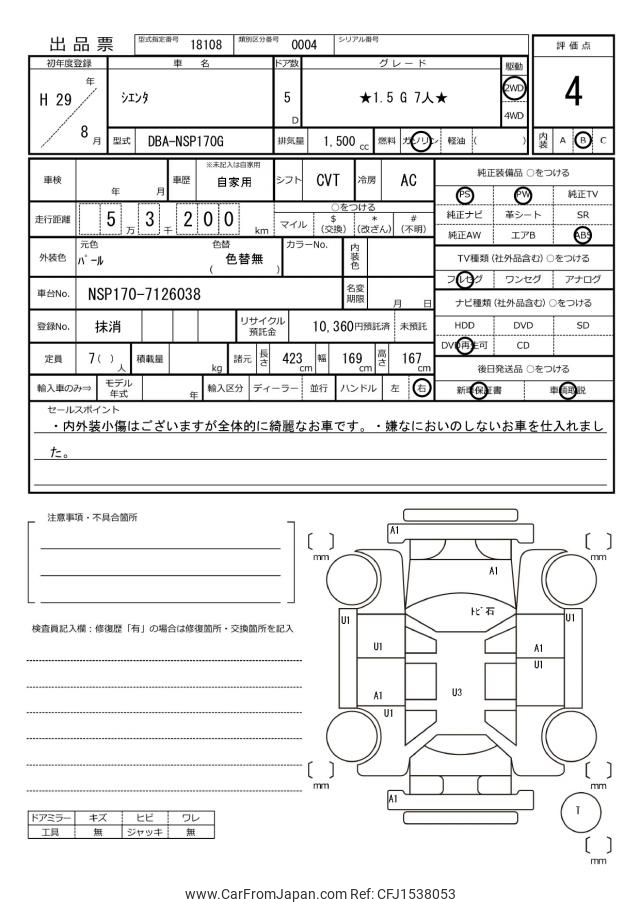 出品票 型式指定番号 18108 類別区分番号 0004 シリアル番号
評価点
4
内装 A B C
初年度登録 車名 ドア数 グレード 駆動
H 29 年 8 月 シエンタ 5 D ★1.5 G 7人★ 2WD
4WD
型式 DBA-NSP170G 排気量 1,500 cc 燃料 ガソリン 軽油 ( )
車検 年 月 車歴 ※未記入は自家用 自家用 シフト CVT 冷房 AC
走行距離 5 万 3 千 2 0 0 km ○をつける
マイル $(交換) *(改ざん) #(不明)
外装色 元色 パール 色替 ( 色替無 ) カラーNo. 内装色
車台No. NSP170-7126038 名変期限 月 日
登録No. 抹消 リサイクル預託金 10,360円預託済 未預託
定員 7( )人 積載量 kg 諸元 長さ 423 cm 幅 169 cm 高さ 167 cm
輸入車のみ⇒ モデル年式 年 輸入区分 ディーラー 並行 ハンドル 左 右
純正装備品 ○をつける
PS PW 純正TV
純正ナビ 革シート SR
純正AW エアB ABS
TV種類 (社外品含む) ○をつける
フルセグ ワンセグ アナログ
ナビ種類 (社外品含む) ○をつける
HDD DVD SD
DVD再生可 CD
後日発送品 ○をつける
新車保証書 車輌取説
セールスポイント
・内外装小傷はございますが全体的に綺麗なお車です。・嫌なにおいのしないお車を仕入れまし
た。
注意事項・不具合箇所
検査員記入欄：修復歴「有」の場合は修復箇所・交換箇所を記入
ドアミラー キズ ヒビ ワレ
工具 無 ジャッキ 無
A1
mm
mm
A1
トビ石
U1
U1
U1
A1
U1
A1
U3
U1
mm
mm
A1
T
mm
www.CarFromJapan.com Ref: CFJ1538053